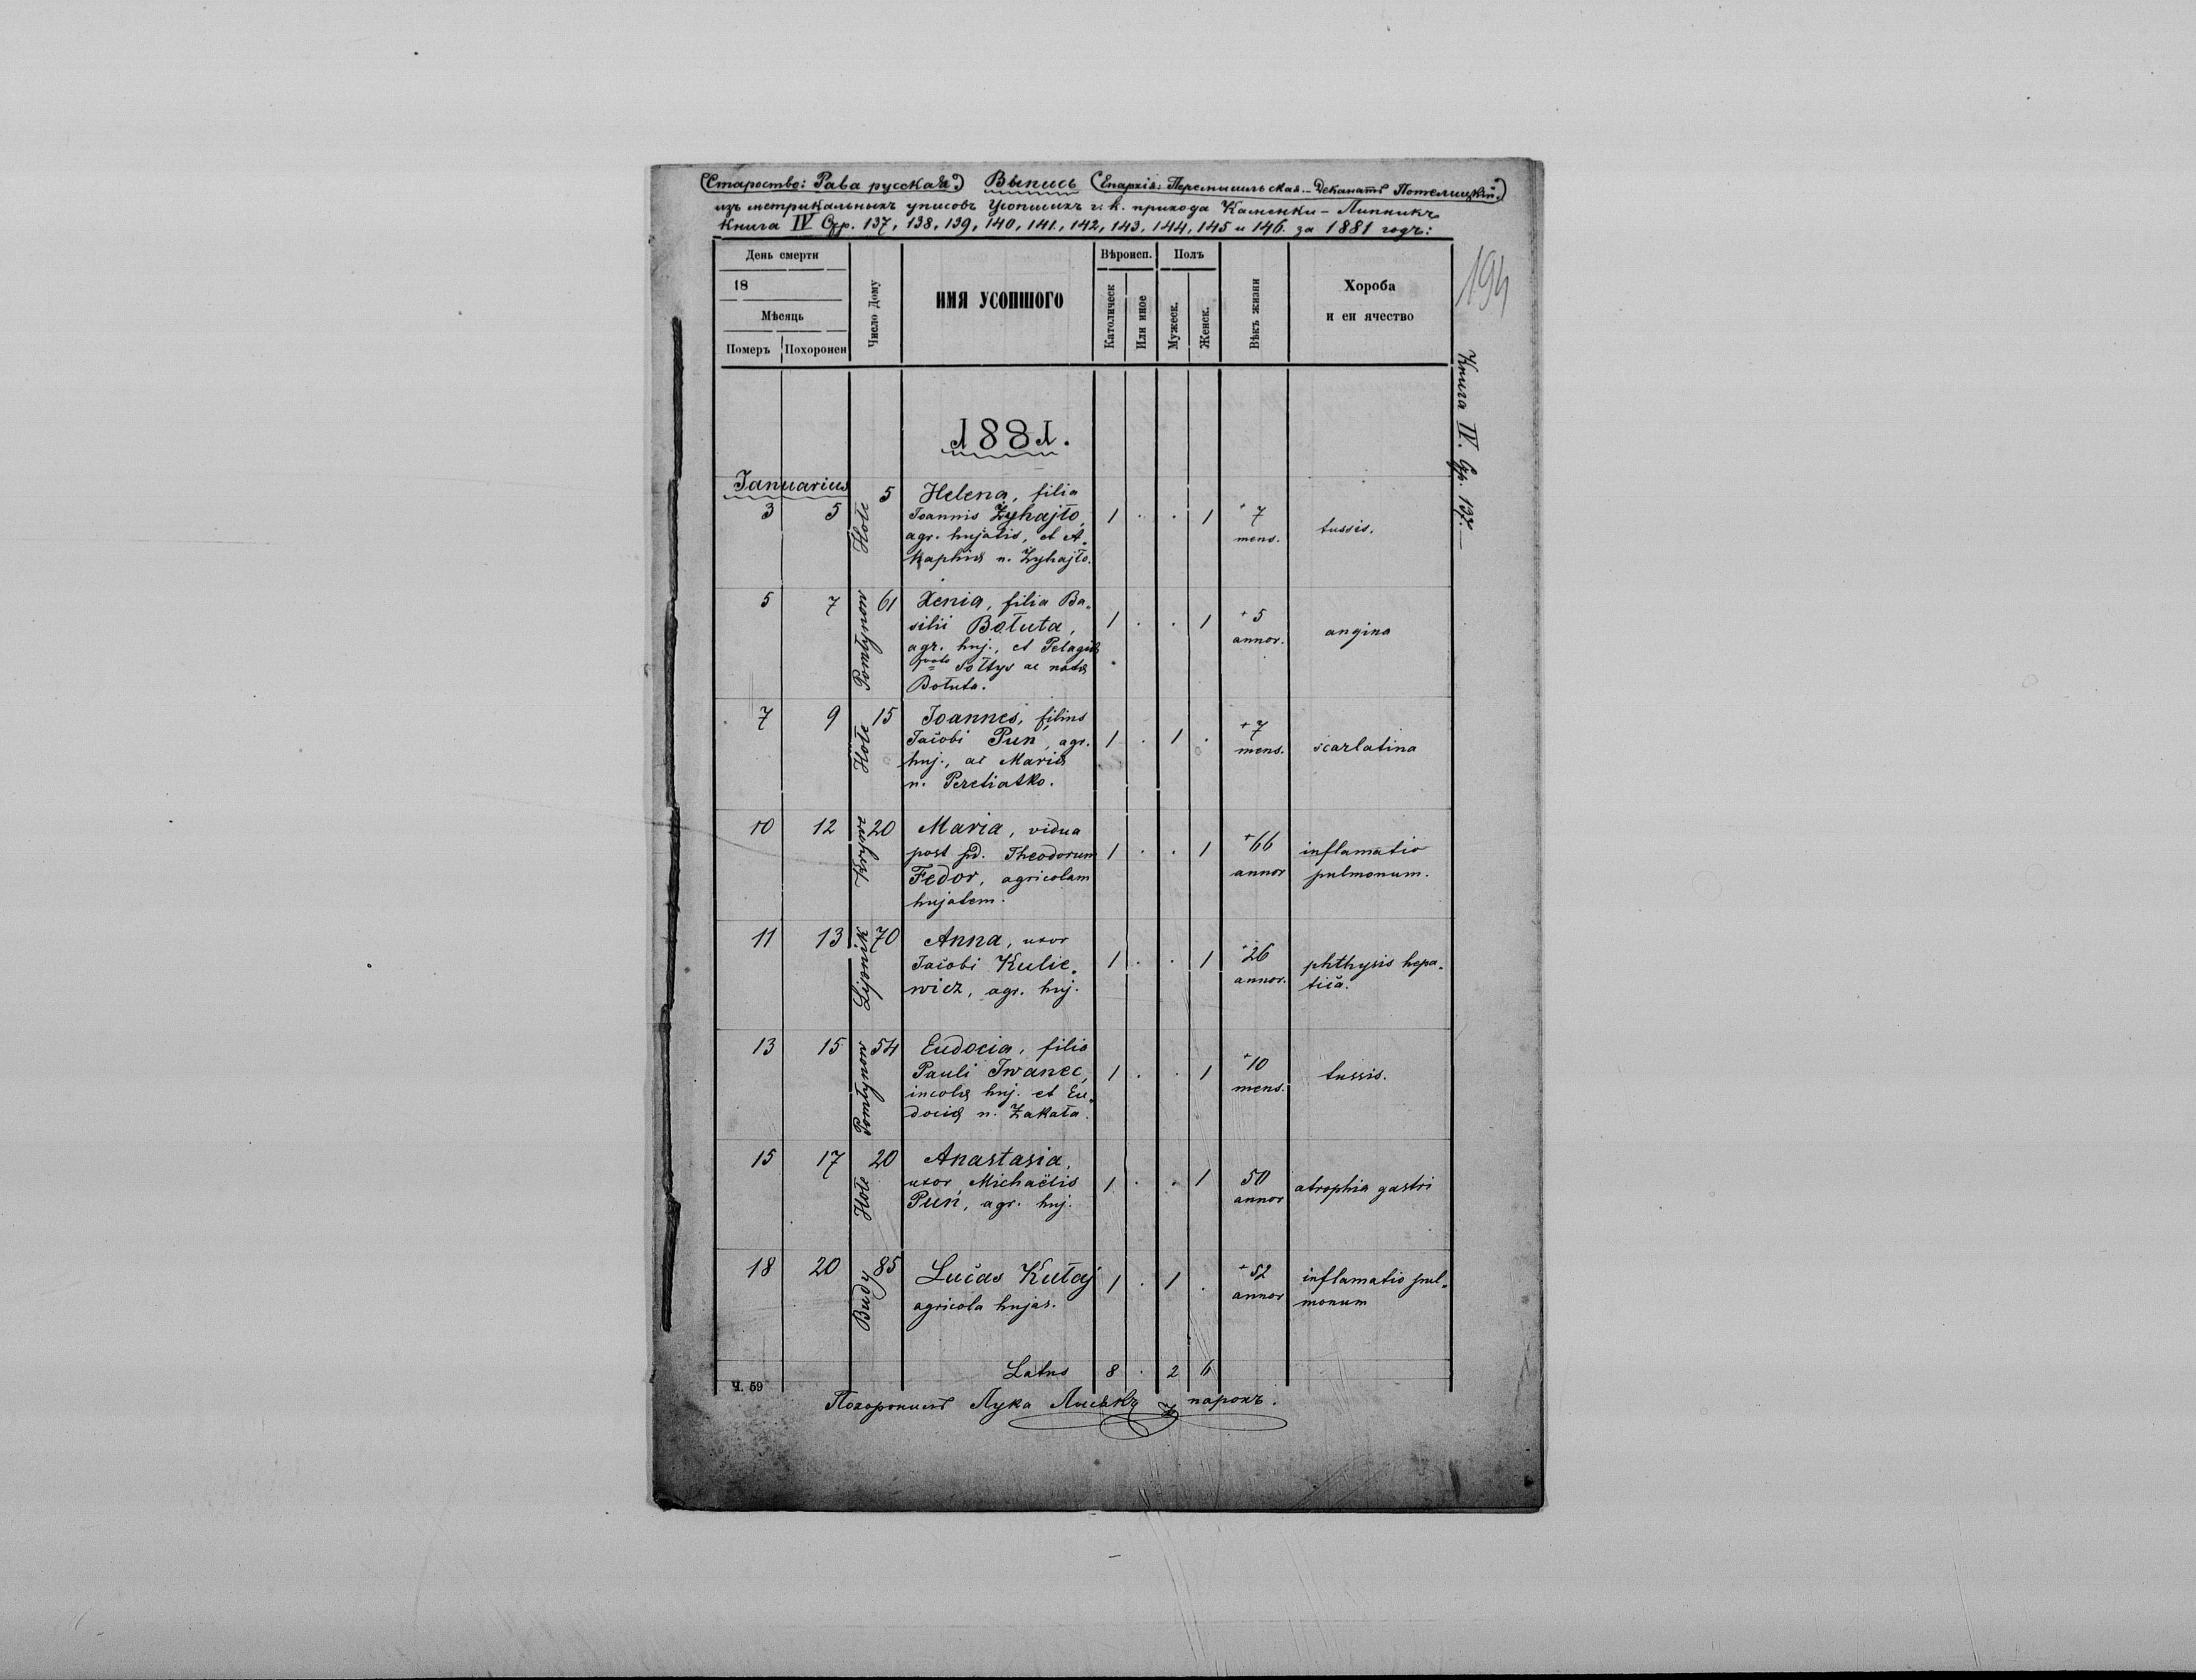 (Староство: Рава русская.) Выпись (Епархія: Перемишльская. – Деканатъ Потелицкій.)
изъ метрикальныхъ уписовъ Усопшихъ г. к. прихода Каменки – Липникъ
Книга IV Стр. 137, 138, 139, 140, 141, 142, 143, 144, 145 и 146. за 1881 годъ:
День смерти
18
Мѣсяць
Померъ Похоронен
Число Дому
ИМЯ УСОПШОГО
Вѣроисп.
Католическ
Или иное
Полъ
Мужеск.
Женск.
Вѣкъ жизни
Хороба
и еи ячество
194
Книга IV. Стр. 137.—
1881.
Januarius
3 5 Hole 5 Helena, filia
Joannis Zyhajło,
agr. hujatis, et A-
kaphiæ n. Zyhajło.
1 . . 1 + 7
mens.
tussis.
5 7 Pomłynow 61 Xenia, filia Ba-
silii Bołuta,
agr. huj., et Pelagiæ
Sołtys ac natæ
Bołuta.
1 . . 1 + 5
annor.
angina
7 9 Hole 15 Joannes, filius
Jacobi Puń, agr.
huj., ac Mariæ
n. Peretiatko.
1 . 1 . + 7
mens.
scarlatina
10 12 Krywe 20 Maria, vidua
post pd. Theodorum
Fedor, agricolam
hujatem.
1 . . 1 + 66
annor
inflamatio
pulmonum.
11 13 Lipnik 70 Anna, uxor
Jacobi Kulic-
wicz, agr. huj.
1 . . 1 + 26
annor.
phthysis hepa-
tica.
13 15 Pomłynow 54 Eudocia, filia
Pauli Iwanec,
incolæ huj. et Eu-
dociæ n. Zakała.
1 . . 1 + 10
mens.
tussis.
15 17 Hole 20 Anastasia,
uxor Michaëlis
Puń, agr. huj.
1 . . 1 50
annor
atrophia gastri
18 20 Budy 85 Lucas Kułaj
agricola hujas.
1 . 1 . + 52
annor
inflamatio pul-
monum
Latus 8 . 2 6
Ч. 59
Похоронилъ Лука парохъ.